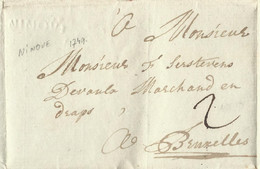 NINOVE
NINOVE 1749.
A Monsieur
Monsieur J. Serstevens
Devaulx Marchand en
draps 2
A Bruxelles